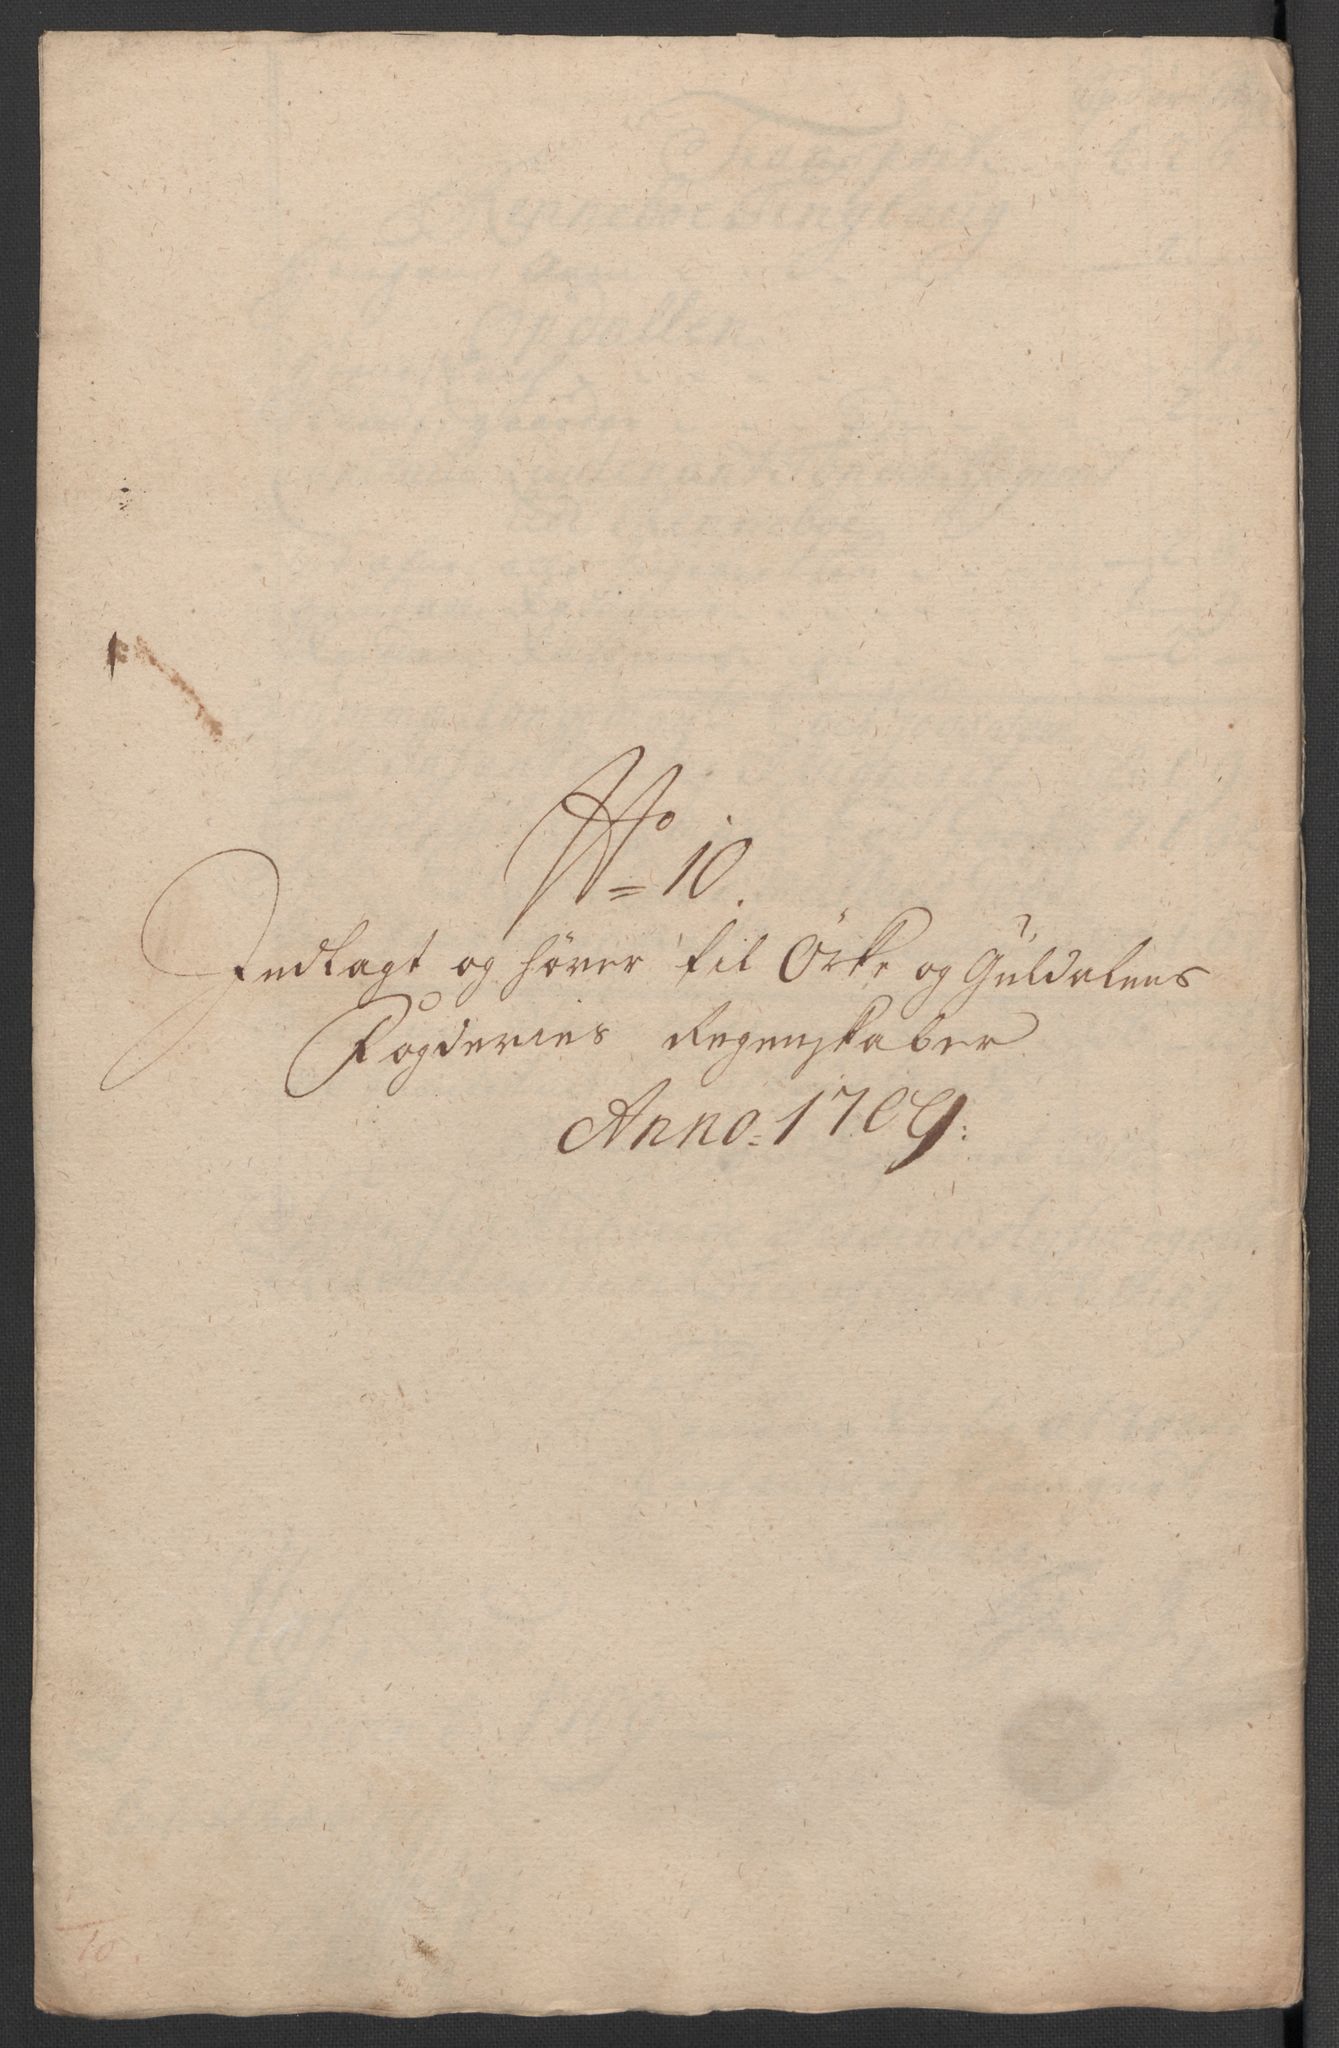 No = 10.
Indlagt og hörer til Örke og Guldalens
Fogderies Regenskaber
Anno = 1709:
10.